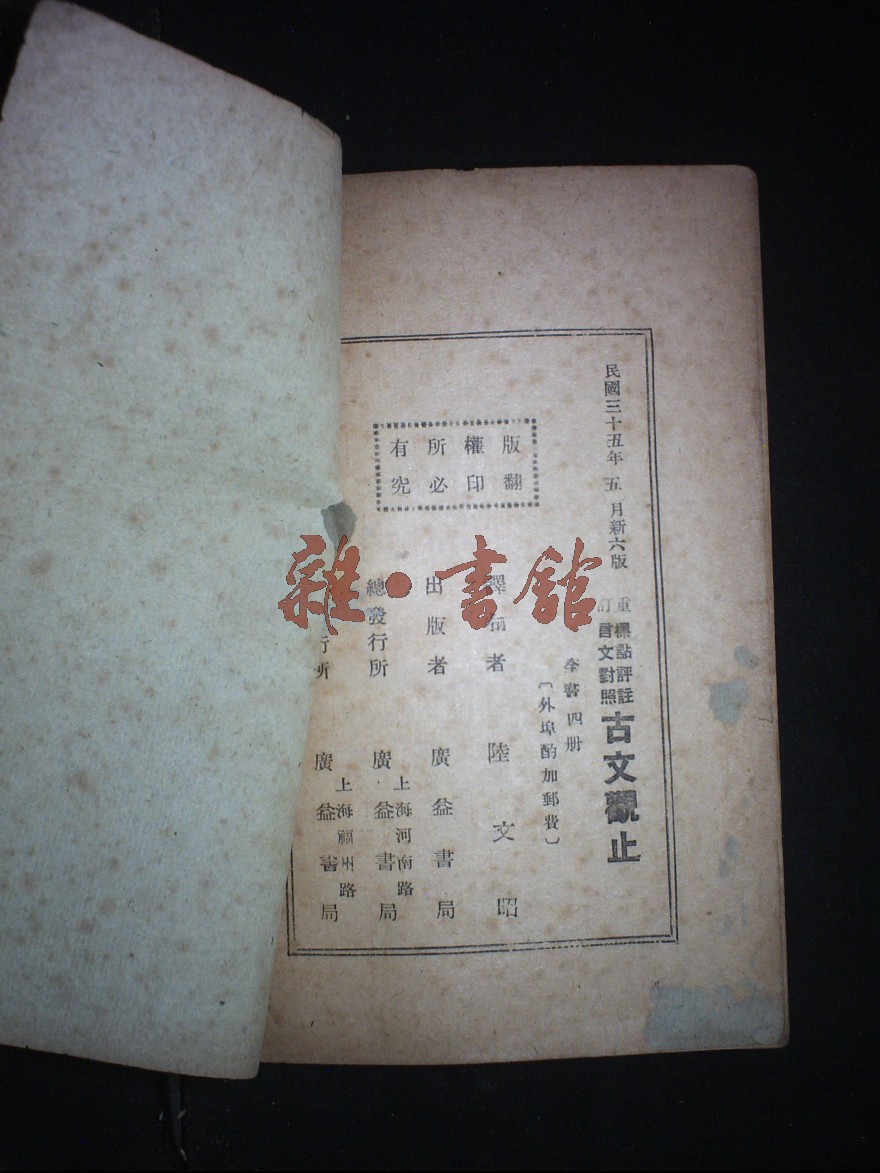 民國三十五年五月新六版
重訂
標點評註
言文對照
古文觀止
全書四册
〔外埠酌加郵費〕
版權所有
翻印必究
者 陸文昭
出版者 廣益書局
總發行所 上海河南路
廣益書局
行所 上海福州路
廣益書局
雜·書館